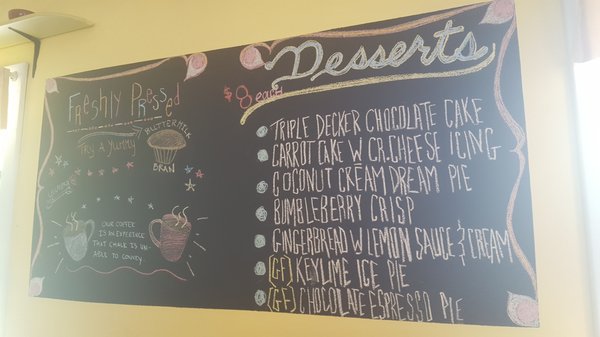 Freshly Pressed
Try a yummy
BUTTERMILK
BRAN
OUR COFFEE
IS AN EXPERIENCE
THAT CHALK IS UN-
ABLE TO CONVEY.
Desserts
$8 each
TRIPLE DECKER CHOCOLATE CAKE
CARROT CAKE W CR.CHEESE ICING
COCONUT CREAM DREAM PIE
BUMBLEBERRY CRISP
GINGERBREAD W LEMON SAUCE & CREAM
(GF) KEYLIME ICE PIE
(GF) CHOCOLATE ESPRESSO PIE